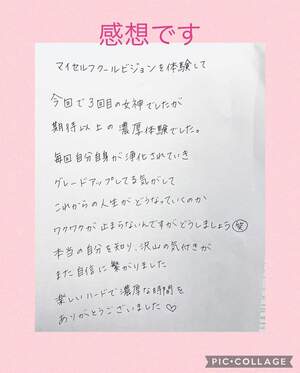 感想です
マイセルフクールビジョンを体験して
今回で3回目の女神でしたが
期待以上の濃厚体験でした。
毎回自分自身が浄化されていき
グレードアップしてる気がして
これからの人生がどうなっていくのか
ワクワクが止まらないんですがどうしましょう(笑)
本当の自分を知り、沢山の気付きが
また自信に繋がりました
楽しいハードで濃厚な時間を
ありがとうございました♡
PIC•COLLAGE